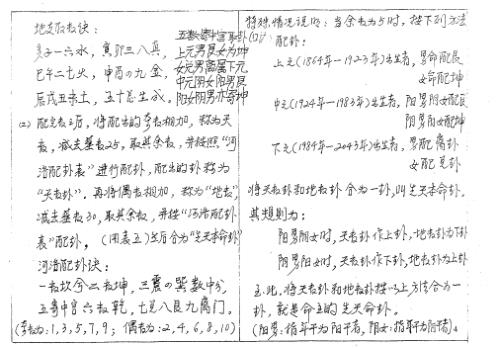 地支取数诀：
亥子一六水，寅卯三八真，
巳午二七火，申酉四九金，
辰戌丑未土，五十总生成，
五数寄中宫取卦
上元男艮女为坤
女兑男离属下元
中元阴女阳男艮
阳女阴男亦寄坤
(2) 配完数后，将配出的奇数相加，称为天
数，减去基数25，取其余数，并按照“河
洛配卦表”进行配卦，配出的卦称为
“天数卦”。再将偶数相加，称为“地数”，
减去基数30，取其余数，并按“河洛配卦
表”配卦，（用表五）然后合为“先天本命卦”
河洛配卦诀：
一数坎余二数坤，三震四巽数中分，
五寄中宫六数乾，七兑八艮九离门。
（奇数为：1，3，5，7，9；偶数为：2，4，6，8，10）
特殊情况说明：当余数为5时，按下列方法
配卦：
上元（1864年—1923年）出生者，男命配艮
女命配坤
中元（1924年—1983年）出生者，阳男阴女配艮
阴男阳女配坤
下元（1984年—2043年）出生者，男配离卦
女配兑卦
将天数卦和地数卦合为一卦，叫先天本命卦。
其规则为：
阳男阴女时，天数卦作上卦，地数卦为下卦
阴男阳女时，天数卦作下卦，地数卦为上卦
至此，将天数卦和地数卦按以上方法合为一
卦，就是命主的先天命卦。
（阳男：指年干为阳干者，阴女：指年干为阴者）。